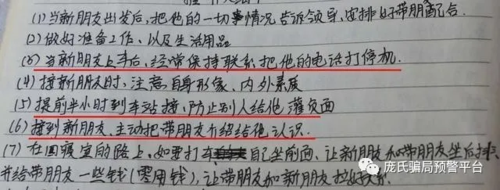 (1)当新朋友出发后,把他的一切事情况告诉领导,安排好带朋配合.
(2)做好准备工作,以及生活用品
(3)当新朋友上车后,经常保持联系把他的电话打停机.
(4)接新朋友时,注意自身形象,内外素质
(5)提前半小时到车站接,防止别人给他灌负面
(6)接到新朋友,主动把带朋友介绍给他认识.
(7)在回寝室的路上,如要打车 自己坐前面,让新朋友和带朋友坐后排.
并给带朋友一些钱(零用钱),让带朋友和新朋友
庞氏骗局预警平台